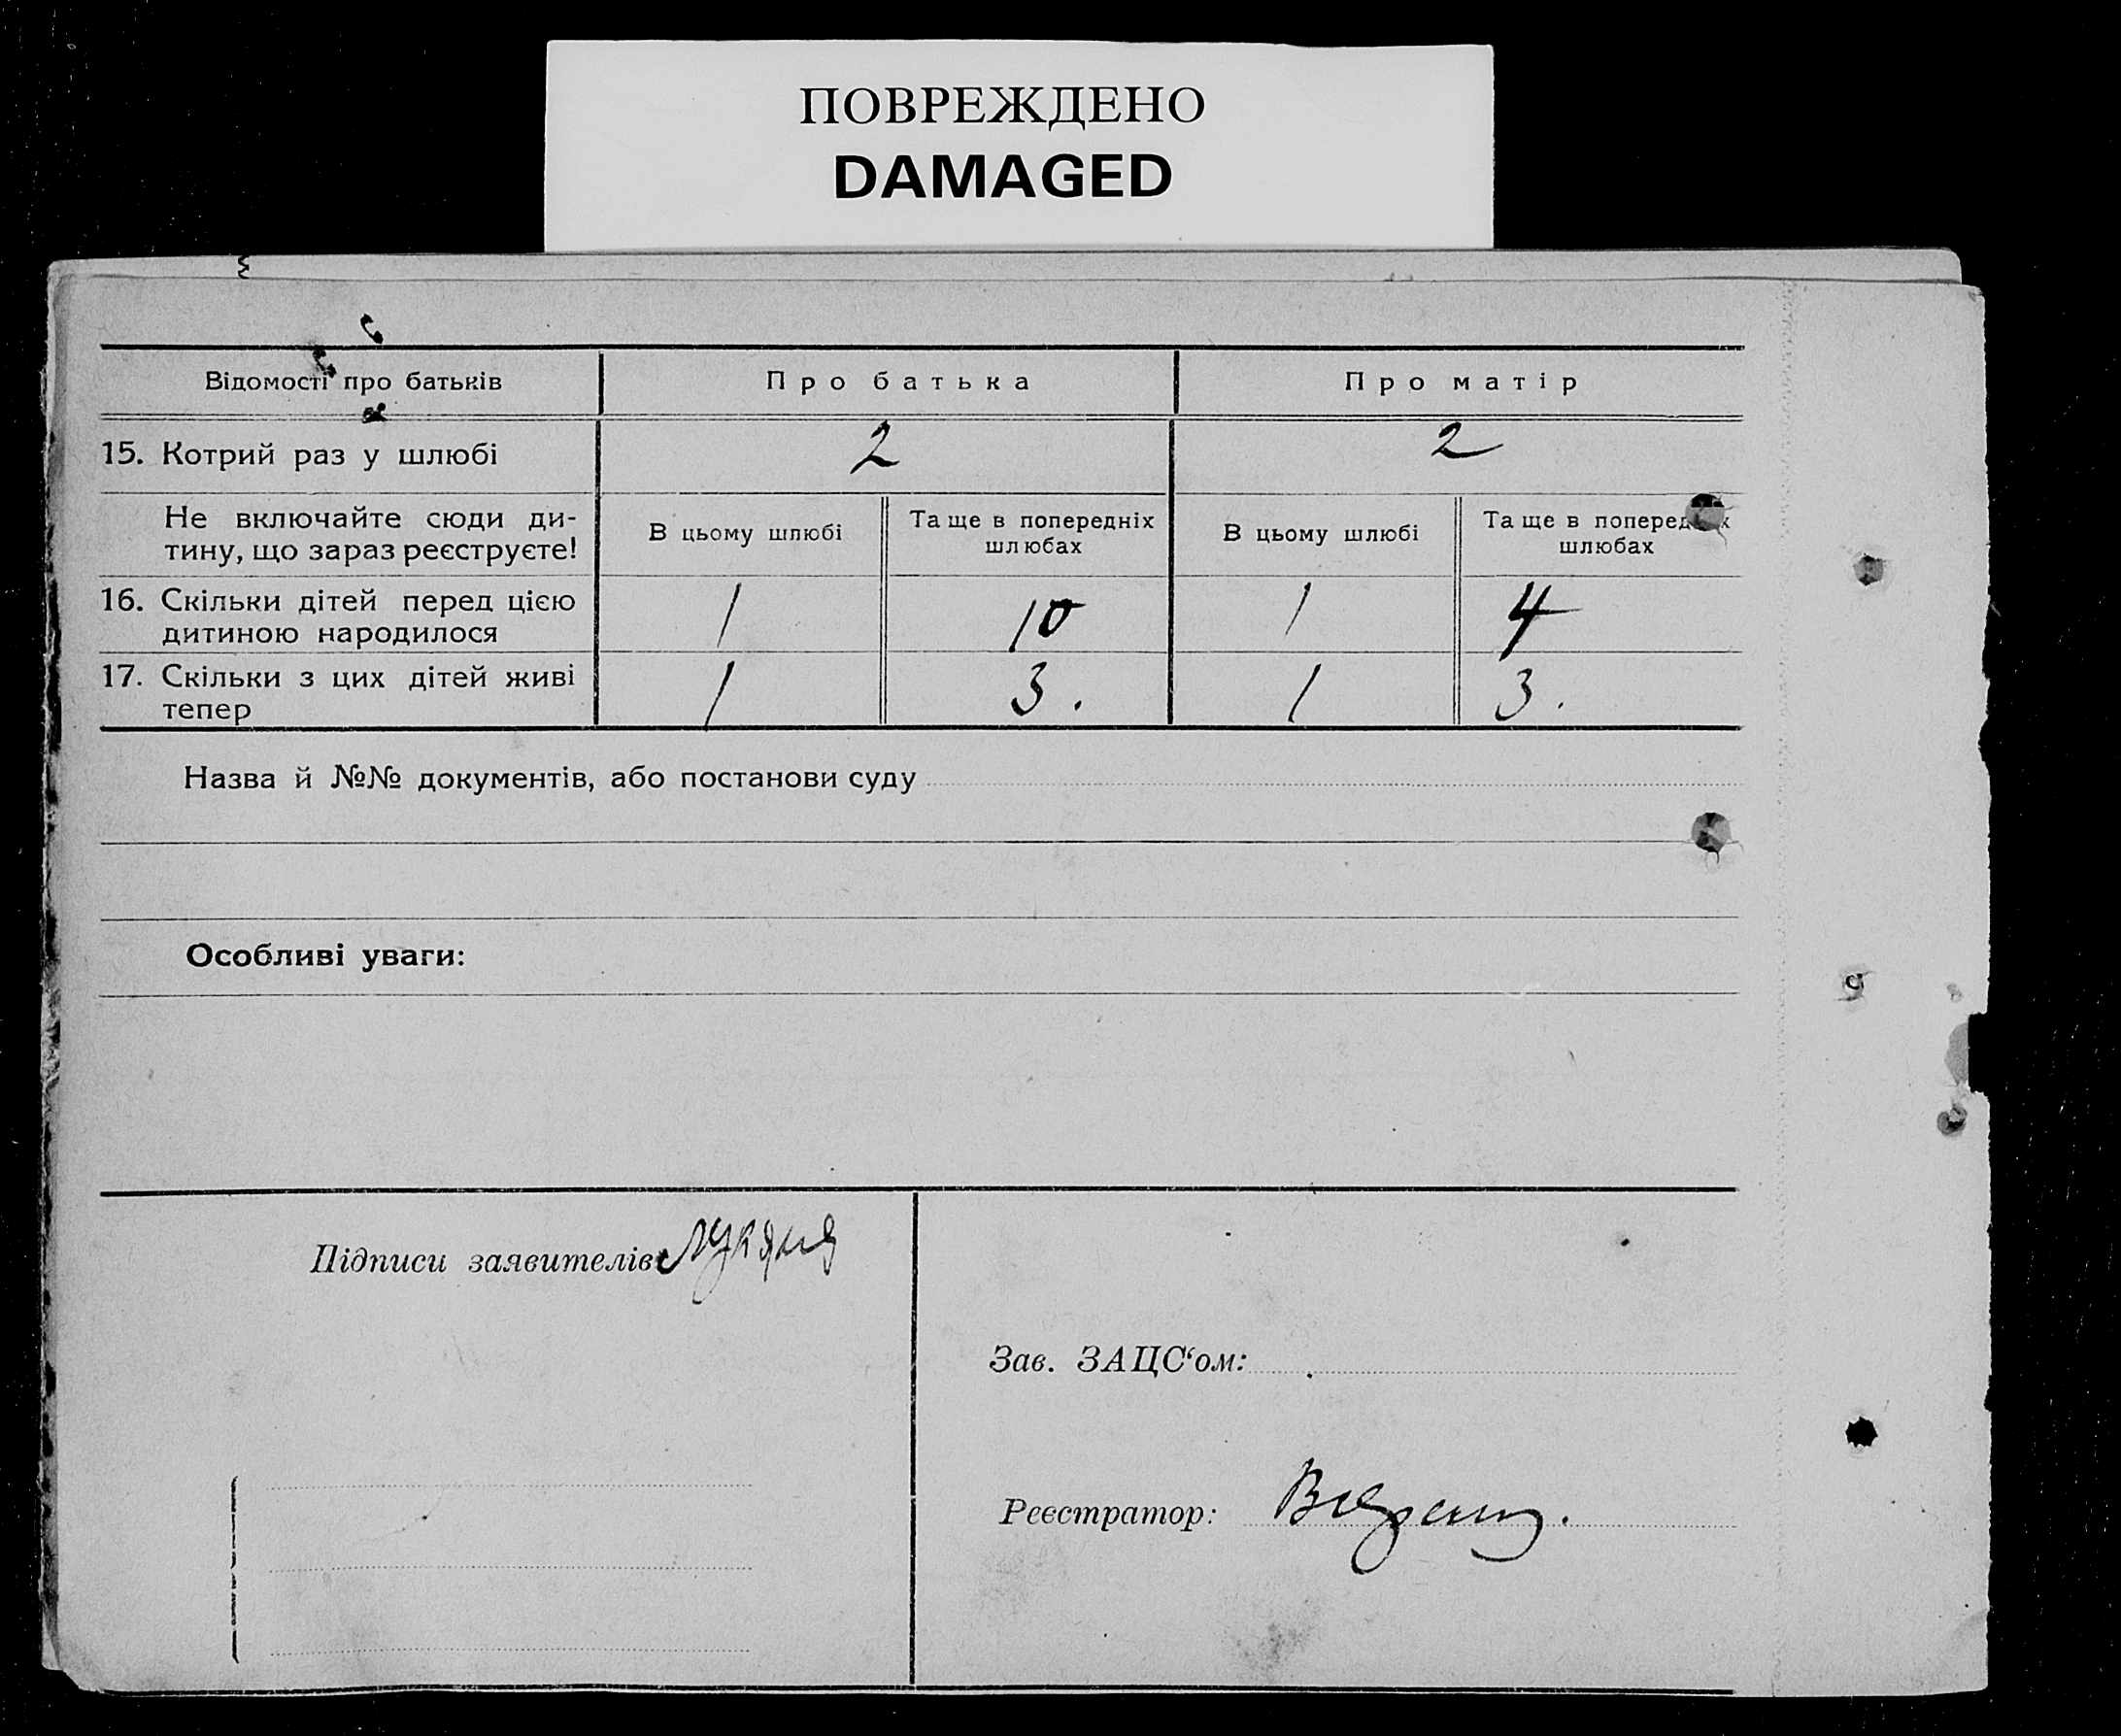 ПОВРЕЖДЕНО
DAMAGED
Відомості про батьків Про батька Про матір
15. Котрий раз у шлюбі 2 2
Не включайте сюди ди-
тину, що зараз реєструєте!
В цьому шлюбі
Та ще в попередніх
шлюбах
В цьому шлюбі
Та ще в поперед х
шлюбах
16. Скільки дітей перед цією
дитиною народилося
1 10 1 4
17. Скільки з цих дітей живі
тепер
1 3. 1 3.
Назва й №№ документів, або постанови суду
Особливі уваги:
Підписи заявителів
Зав. ЗАЦС‘ом:
Реєстратор: